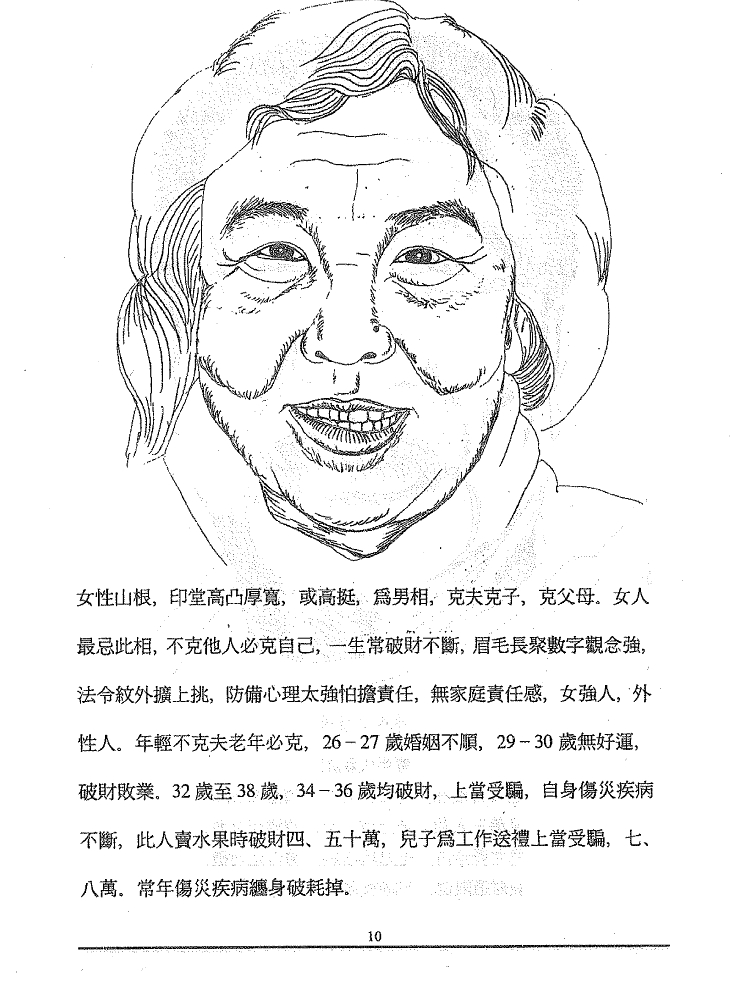 女性山根，印堂高凸厚寬，或高挺，爲男相，克夫克子，克父母。女人
最忌此相，不克他人必克自己，一生常破財不斷，眉毛長聚數字觀念強，
法令紋外擴上挑，防備心理太強怕擔責任，無家庭責任感，女強人，外
性人。年輕不克夫老年必克，26－27 歲婚姻不順，29－30 歲無好運，
破財敗業。32 歲至 38 歲，34－36 歲均破財，上當受騙，自身傷災疾病
不斷，此人賣水果時破財四、五十萬，兒子爲工作送禮上當受騙，七、
八萬。常年傷災疾病纏身破耗掉。
10